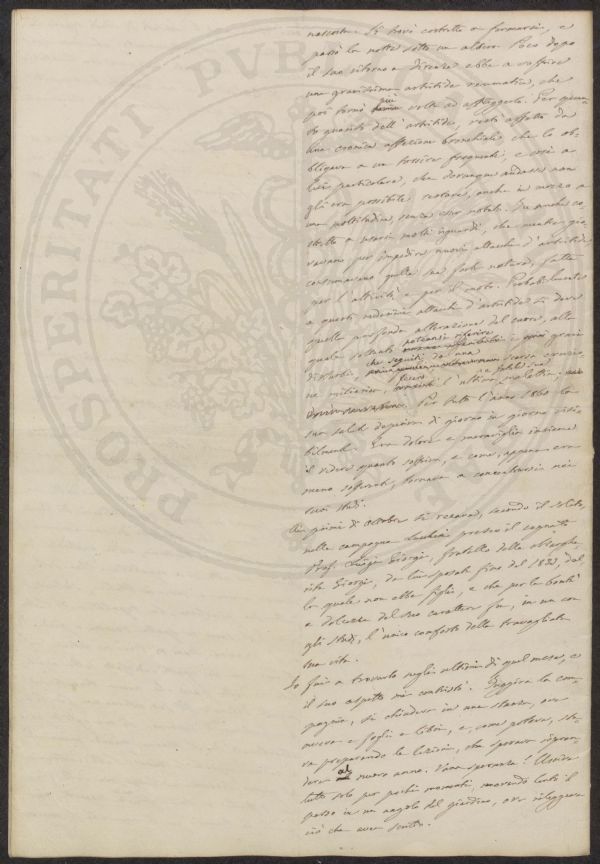 nascosta. Si trovò costretto a fermarsi, e
passò la notte sotto un albero. Poco dopo
il suo ritorno a Firenze ebbe a soffrire
una gravissima artritide reumatica, che
poi tornò più volte ad affliggerlo. Per quan-
to guarito dell'artritide, restò affetto da
una cronica affezione bronchiale che lo ob-
bligava a una tosse frequente, e così a
lui particolare, che dovunque andasse non
gli era possibile restare, anche in mezzo a
una moltitudine, senza esser notato. Fu anche co-
stretto a usarsi molti riguardi, che mentre gio-
vavano per impedire nuovi attacchi d'artritide
consumavano quella sua forte natura, fatta
per l'attività e per il moto. Probabilmente
a questi medesimi attacchi d'artritide si deve
quella profonda alterazione del cuore, alla
quale soltanto potevansi riferire i gravi
disturbi, che seguiti da una scarsa eruzio-
ne miliarica, fecero l'ultima malattia,
Per tutto l'anno 1860 la
sua salute deperiva di giorno in giorno visi-
bilmente. Era dolore e maraviglia insieme
il vedere quanto soffriva, e come, appena era
meno sofferente, tornava a concentrarsi nei
suoi studi.
Ai primi di ottobre si recava, secondo il solito,
nella campagna Lucchese presso il cognato
Prof. Luigi Giorgi, fratello della Marghe-
rita Giorgi, da lui sposata fino dal 1833, dal-
la quale non ebbe figli, e che per la bontà
e dolcezza del suo carattere fu, in un con
gli studi, l'unico conforto della travagliata
sua vita.
Io fui a trovarlo negli ultimi di quel mese, e
il suo aspetto mi contristò. Fuggiva la com-
pagnia, si chiudeva in una stanza, ove
aveva e fogli e libri, e, come poteva, sta-
va preparando le lezioni, che sperava ripren-
dere al nuovo anno. Vana speranza! Usciva
tutto solo per pochi momenti, movendo lenti il
passo in un angolo del giardino, ove rileggeva
ciò che avea scritto.
PROSPERITATI PVBLICAE